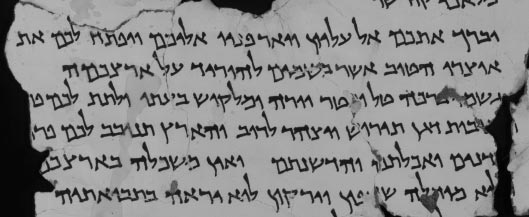 וברך אתכם אל עליון ויאר פניו אליכם ויפתח לכם את
אוצרו הטוב אשר בשמים להוריד על ארצכמה
גשמי ברכה טל ומטר יורה ומלקוש בעתו ולתת לכם
דגן תירוש ויצהר לרוב והארץ תנובב לכם
ואכלתם והדשנתם ואין משכלה
מוחלה שדפון וירקון לוא יראה בתבואתיה